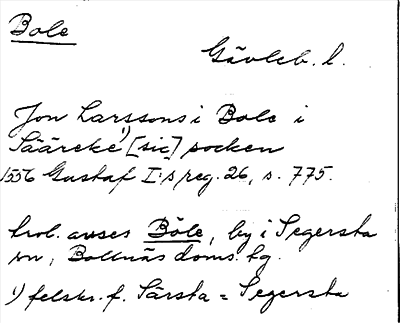 Bole
Gävleb. l.
Jon Larssons i Bole i
Sääreke ¹) [sic] socken
1556 Gustaf I:s reg. 26, s. 775.
trol. avses Böle, by i Segersta
sn, Bollnäs doms. tg.
¹) felskr. f. Särsta = Segersta